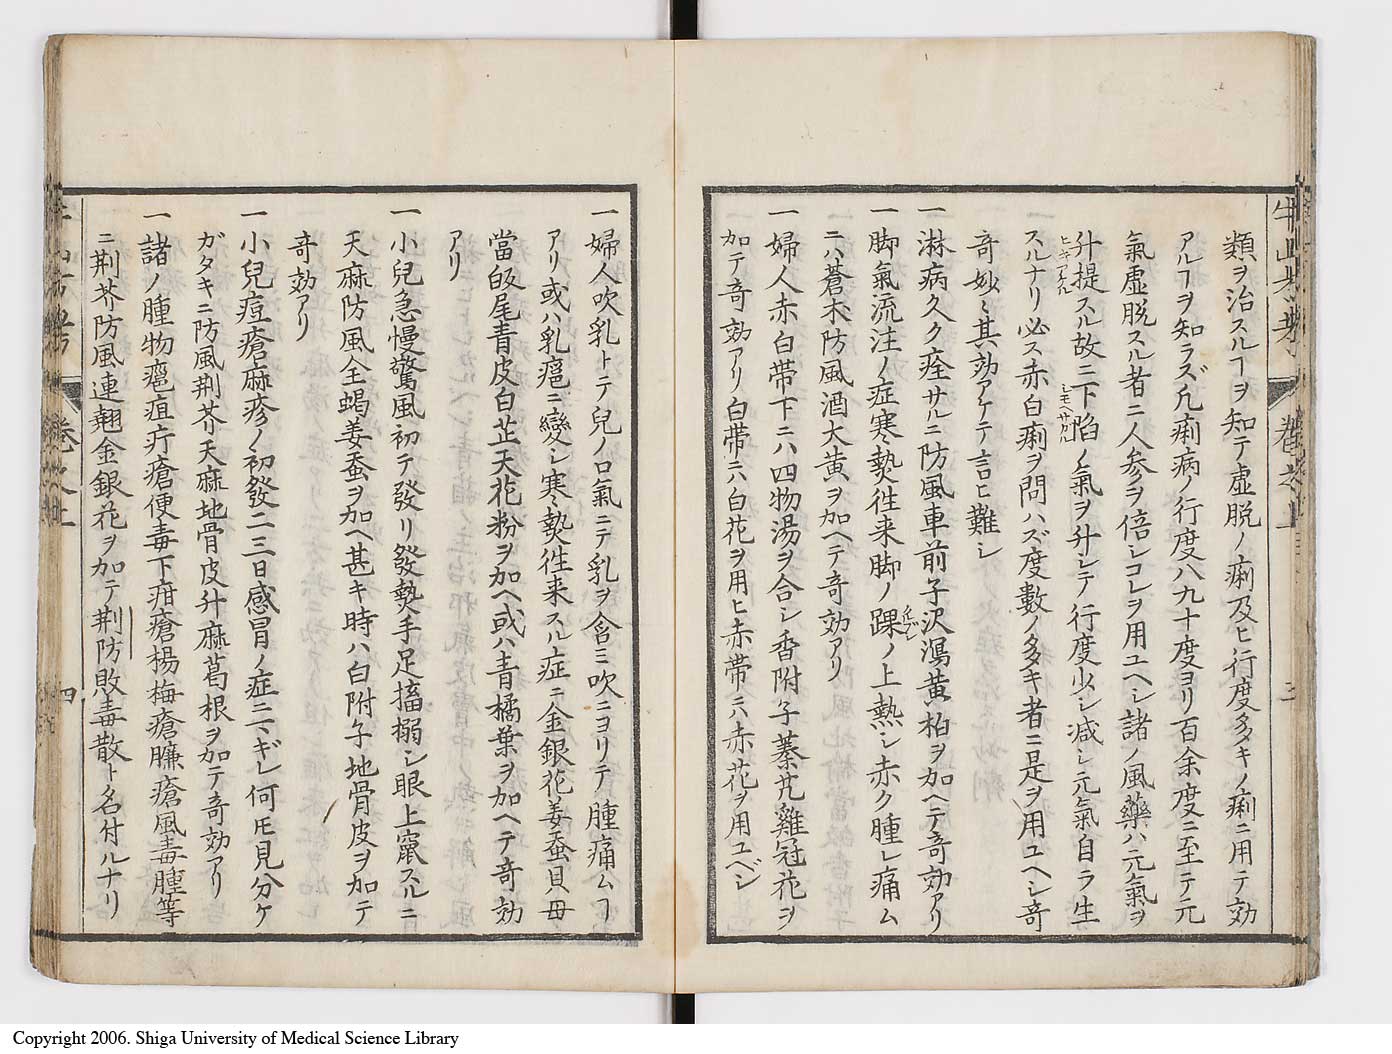 類ヲ治スルヿヲ知テ虚脱ノ痢及ヒ行度多キノ痢ニ用テ効
アルヿヲ知ラズ凡痢病ノ行度八九十度ヨリ百余度ニ至テ元
氣虚脱スル者ニ人参ヲ倍シコレヲ用ユヘシ諸ノ風藥ハ元氣ヲ
升提スル故ニ下陷ノ氣ヲ升シテ行度少シ減シ元氣自ラ生
スルナリ必ス赤白痢ヲ問ハズ度數ノ多キ者ニ是ヲ用ユヘシ奇
奇妙々其効アケテ言ヒ難シ
一淋病久ク痊サルニ防風車前子沢瀉黄柏ヲ加ヘテ奇効アリ
一脚氣流注ノ症寒𤍠徃来脚ノ踝ノ上熱シ赤ク腫レ痛ム
ニハ蒼朮防風酒大黄ヲ加ヘテ奇効アリ
一婦人赤白带下ニハ四物湯ヲ合シ香附子蓁艽雞冠花ヲ
加テ奇効アリ白带ニハ白花ヲ用ヒ赤带ニハ赤花ヲ用ユベシ
一婦人吹乳トテ兒ノ口氣ニテ乳ヲ含ミ吹ニヨリテ腫痛ムヿ
アリ或ハ乳癰ニ變シ寒𤍠徃来スル症ニ金銀花姜蚕貝母
當皈尾青皮白芷天花粉ヲ加ヘ或ハ青橘葉ヲ加ヘテ奇効
アリ
一小兒急慢驚風初テ發リ發𤍠手足搐搦シ眼上竄スルニ
天麻防風全蝎姜蚕ヲ加ヘ甚キ時ハ白附子地骨皮ヲ加テ
奇効アリ
一小兒痘瘡麻疹ノ初發二三日感冒ノ症ニマギレ何𪜈見分ケ
ガタキニ防風荆芥天麻地骨皮升麻葛根ヲ加テ奇効アリ
一諸ノ腫物癰疽疔瘡便毒下疳瘡楊梅瘡臁瘡風毒腫等
ニ荆芥防風連翹金銀花ヲ加テ荆防敗毒散ト名付ルナリ
四
Copyright 2006. Shiga University of Medical Science Library